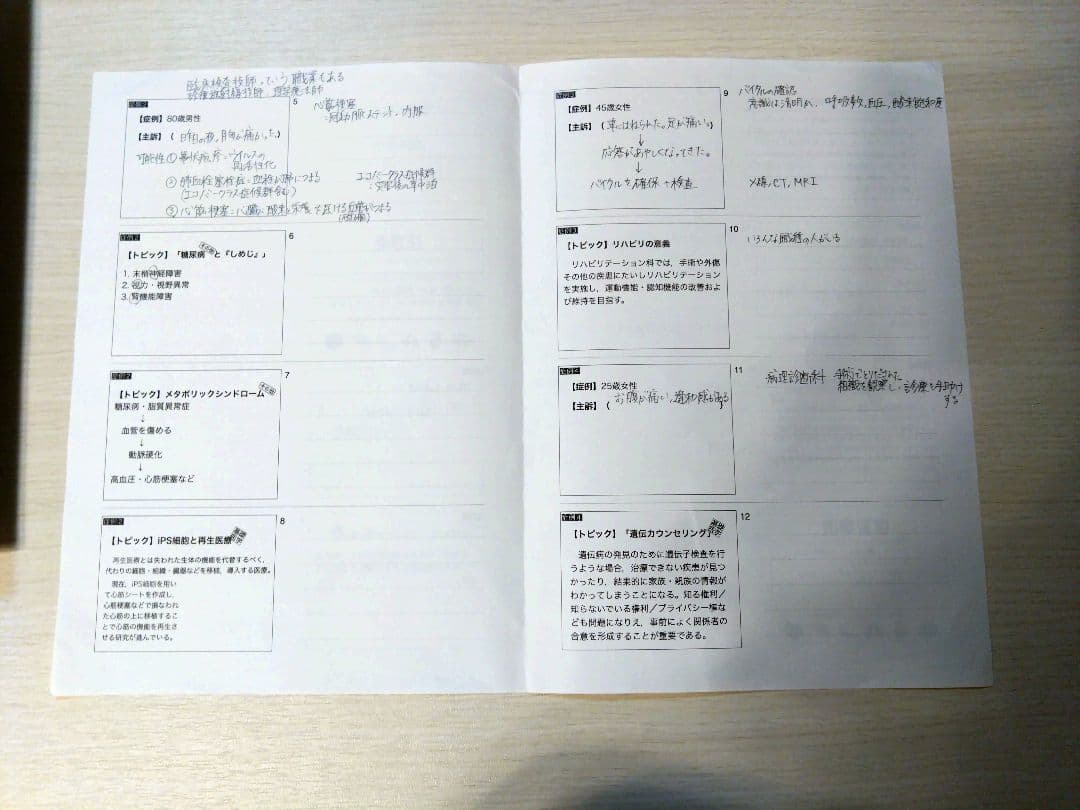 臨床検査技師っていう職業もある
診療放射線技師、理学療法士
症例2
5
【症例】80歳男性
【主訴】（昨日の夜、胸が痛かった。）
可能性 ① 帯状疱疹：ウイルスの
再活性化
② 肺血栓塞栓症：血栓が肺につまる
（エコノミークラス症候群含む）
③ 心筋梗塞：心臓に酸素と栄養を届ける血管がつまる
心筋梗塞
：冠動脈ステント、内服
エコノミークラス症候群
：災害後の車中泊
症例2
6
【トピック】「糖尿病と『しめじ』」
1. 末梢神経障害
2. 視力・視野異常
3. 腎機能障害
症例2
7
【トピック】メタボリックシンドローム
糖尿病・脂質異常症
↓
血管を傷める
↓
動脈硬化
↓
高血圧・心筋梗塞など
症例2
8
【トピック】iPS細胞と再生医療
再生医療とは失われた生体の機能を代替するべく、
代わりの細胞・組織・臓器などを移植、導入する医療。
現在、iPS細胞を用い
て心筋シートを作成し、
心筋梗塞などで損なわれ
た心筋の上に移植するこ
とで心筋の機能を再生さ
せる研究が進んでいる。
症例3
9
【症例】45歳女性
【主訴】（車にはねられた。足が痛い。）
↓
応答があやしくなってきた。
↓
バイタルを確保＋検査
バイタルの確認
意識は清明か、呼吸数、血圧、酸素飽和度
X線、CT、MRI
症例3
10
【トピック】リハビリの意義
リハビリテーション科では、手術や外傷
その他の疾患にたいしリハビリテーション
を実施し、運動機能・認知機能の改善およ
び維持を目指す。
いろんな職種の人がいる
症例4
11
【症例】25歳女性
【主訴】（お腹が痛い、違和感もある）
病理診断科 手術でとり出された
組織を観察し、診療を手助け
する
症例4
12
【トピック】「遺伝カウンセリング」
遺伝病の発見のために遺伝子検査を行
うような場合、治療できない疾患が見つ
かったり、結果的に家族・親族の情報が
わかってしまうことになる。知る権利／
知らないでいる権利／プライバシー権な
ども問題になりえ、事前によく関係者の
合意を形成することが重要である。